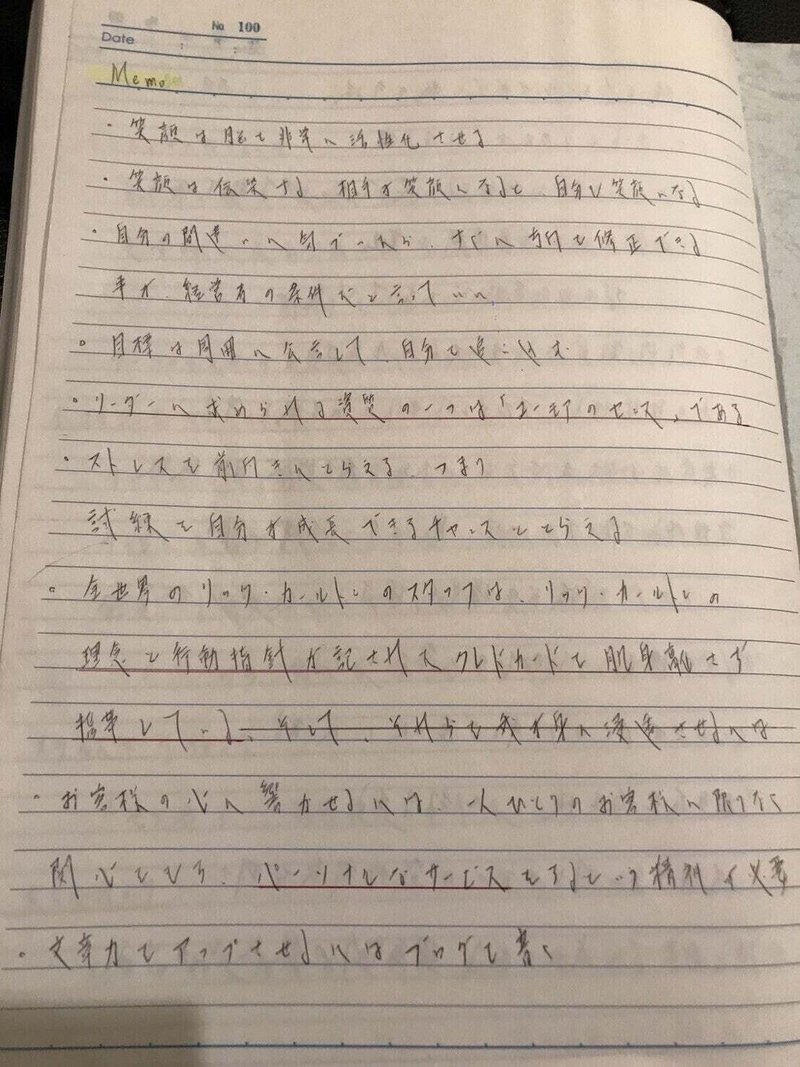 No 100
Date
Memo
・笑顔は脳を非常に活性化させる
・笑顔は伝染する。相手が笑顔になると、自分も笑顔になる
・自分の間違いに気づいたら、すぐに方向を修正できる
事が、経営者の条件だと言っていい。
・目標は周囲に公言して、自分を追い込む
・リーダーに求められる資質の一つは「ユーモアのセンス」である
・ストレスを前向きにとらえる。つまり
試練を自分が成長できるチャンスととらえる
・全世界のリッツ・カールトンのスタッフは、リッツ・カールトンの
理念と行動指針が記されたクレドカードを肌身離さず
携帯している。そして、それらを我が身に浸透させるには
・お客様の心に響かせるには、一人ひとりのお客様に限りなく
関心をもち、パーソナルなサービスをするという精神が必要
・文章力をアップさせるにはブログを書く